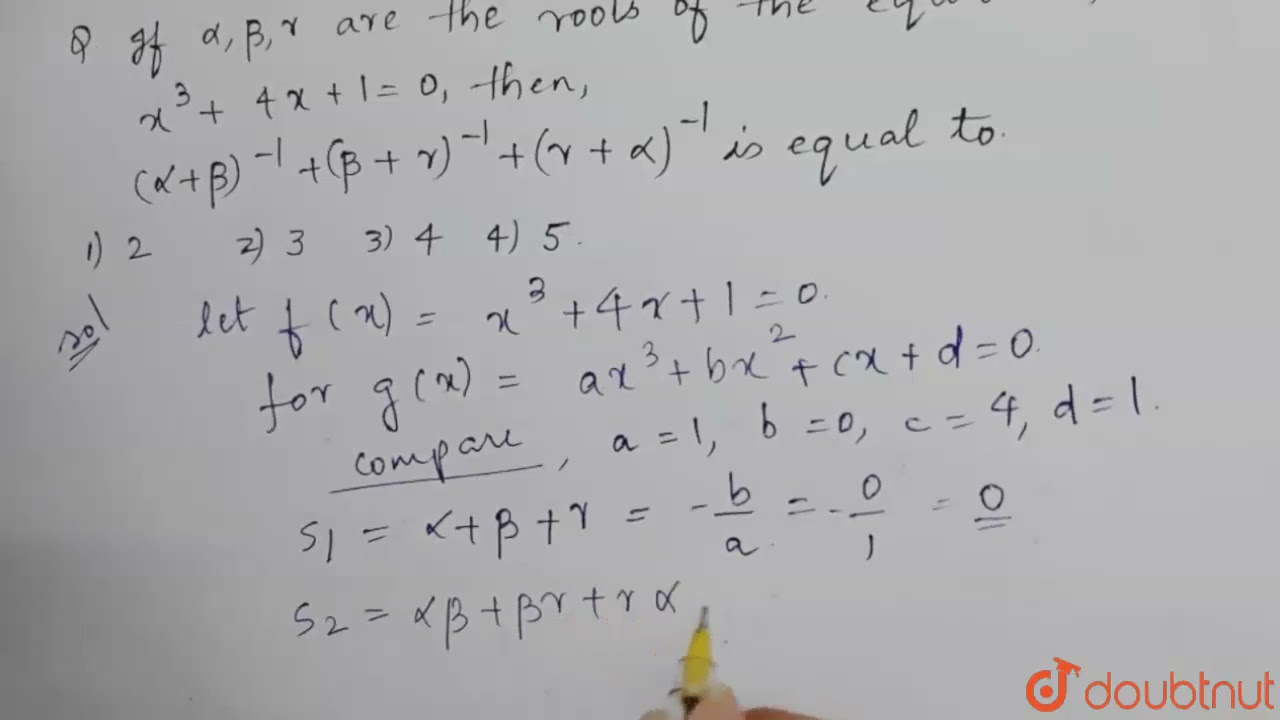 Q If α, β, r are the roots of the
x³ + 4x + 1 = 0, then,
(α+β)⁻¹ + (β + r)⁻¹ + (r + α)⁻¹ is equal to.
1) 2 2) 3 3) 4 4) 5.
sol let f(x) = x³ + 4x + 1 = 0.
for g(x) = ax³ + bx² + cx + d = 0.
compare, a = 1, b = 0, c = 4, d = 1.
S₁ = α + β + r = -b/a = -0/1 = 0
S₂ = αβ + βr + rα
doubtnut